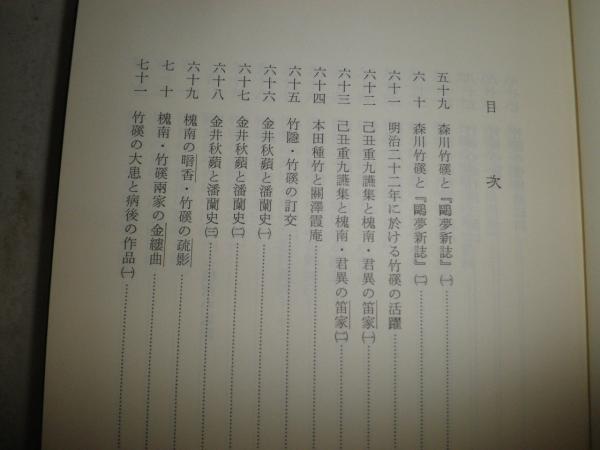 目次
五十九 森川竹磎と『鷗夢新誌』㈠
六十 森川竹磎と『鷗夢新誌』㈡
六十一 明治二十二年に於ける竹磎の活躍
六十二 己丑重九讌集と槐南・君異の笛家㈠
六十三 己丑重九讌集と槐南・君異の笛家㈡
六十四 本田種竹と關澤霞庵
六十五 竹隱・竹磎の訂交
六十六 金井秋蘋と潘蘭史㈠
六十七 金井秋蘋と潘蘭史㈡
六十八 金井秋蘋と潘蘭史㈢
六十九 槐南の暗香・竹磎の疏影
七十 槐南・竹磎兩家の金縷曲
七十一 竹磎の大患と病後の作品㈠